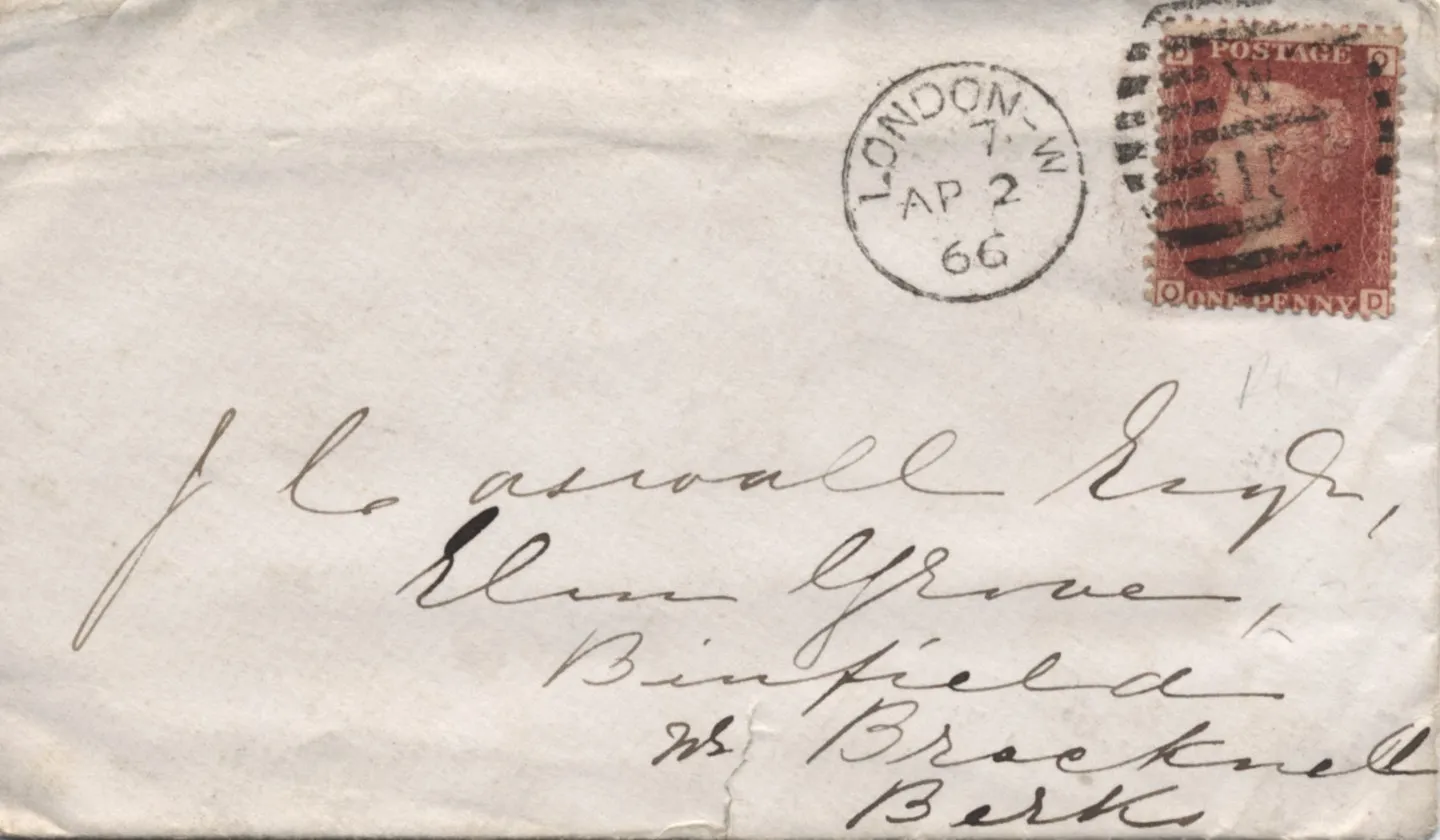 D POSTAGE Q
LONDON-W
7
AP 2
66
W
Q ONE PENNY D
J Caswall Esqr,
Elm Grove,
Binfield
Nr Bracknell
Berks